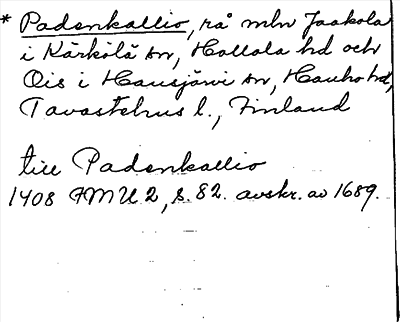 * Padenkallio, rå mln Jaakola
i Kärkölä sn, Hollola hd och
Ois i Hausjärvi sn, Hauho hd,
Tavastehus l., Finland
till Padenkallio
1408 FMU 2, s. 82. avskr. av 1689.